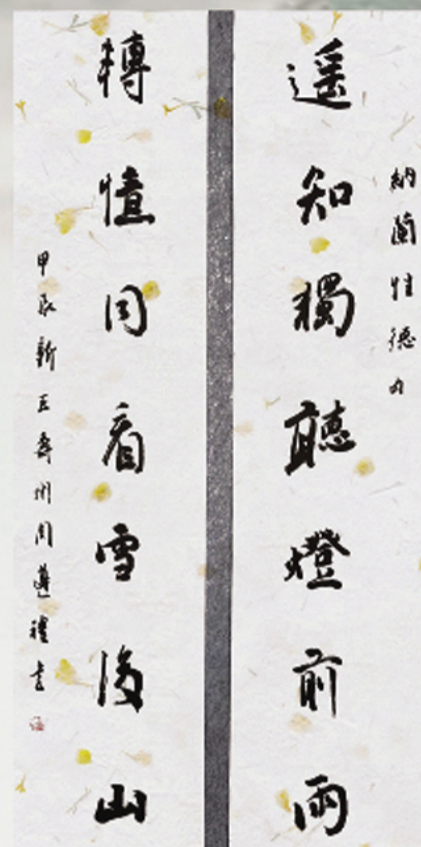 納蘭性德句
遥知獨聽燈前雨
轉憶同看雪後山
甲辰新正壽州周遵禮書